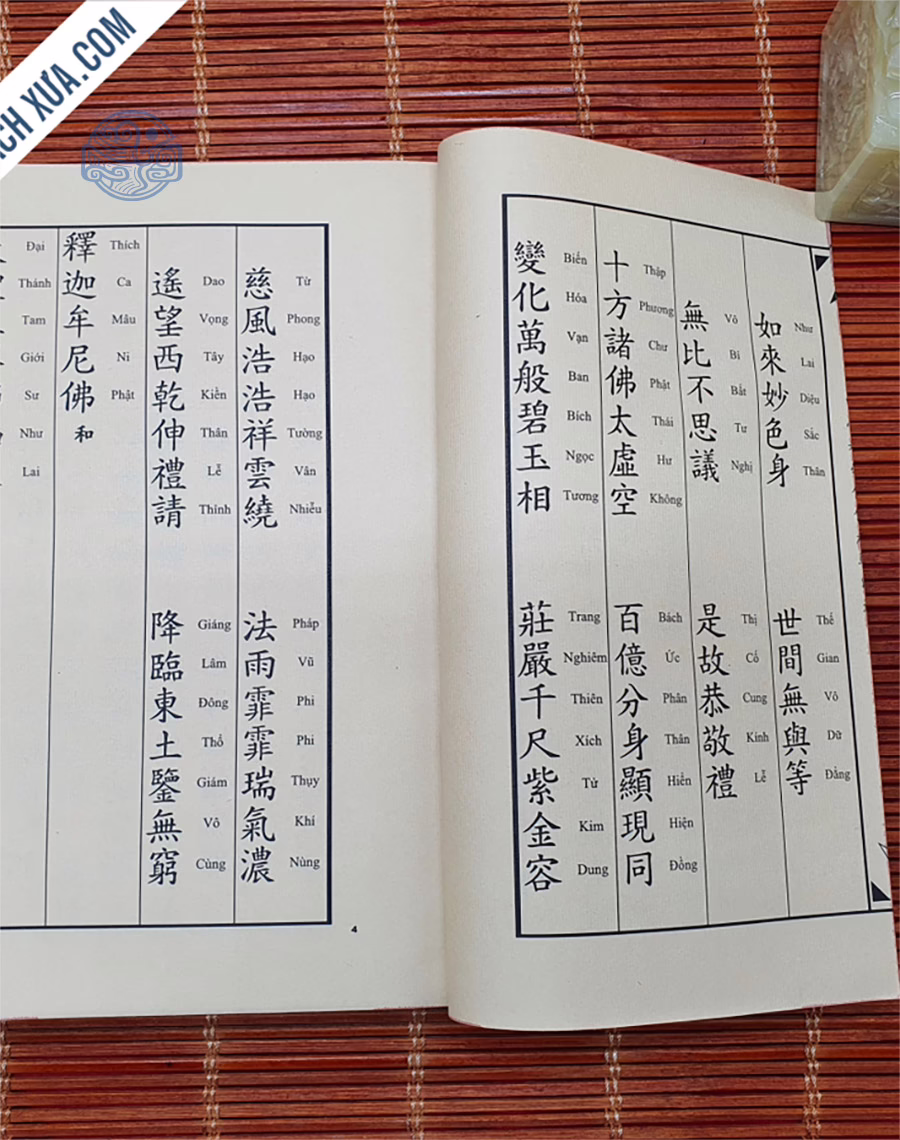 如來妙色身 世間無與等
Như Lai Diệu Sắc Thân Thế Gian Vô Dữ Đẳng
無比不思議 是故恭敬禮
Vô Bỉ Bất Tư Nghị Thị Cố Cung Kính Lễ
十方諸佛太虛空 百億分身顯現同
Thập Phương Chư Phật Thái Hư Không Bách Ức Phân Thân Hiển Hiện Đồng
變化萬般碧玉相 莊嚴千尺紫金容
Biến Hóa Vạn Ban Bích Ngọc Tương Trang Nghiêm Thiên Xích Tử Kim Dung
慈風浩浩祥雲繞 法雨霏霏瑞氣濃
Từ Phong Hạo Hạo Tường Vân Nhiễu Pháp Vũ Phi Phi Thụy Khí Nùng
遙望西乾伸禮請 降臨東土鑒無窮
Dao Vọng Tây Kiền Thân Lễ Thỉnh Giáng Lâm Đông Thổ Giám Vô Cùng
釋迦牟尼佛 和
Thích Ca Mâu Ni Phật
Đại Thánh Tam Giới Sư Như Lai
4
XƯA.COM